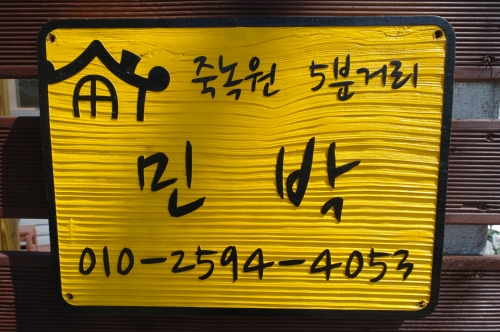 죽녹원 5분거리
민 박
010-2594-4053